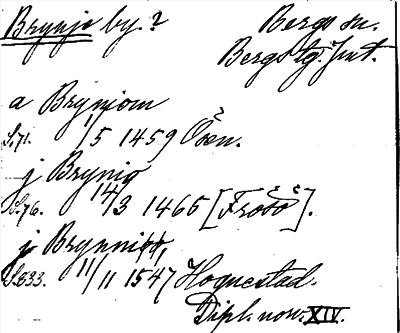 Brynje by.? Bergs sn.
Bergs tg. Jmt.
a Brynjom
S. 71. 1/5 1459 Ösen.
j Brynio
S. 76. 14/3 1465 [Frösö].
j Brynni
S. 833. 11/11 1547 Hognestad.
Dipl. norv. XIV.